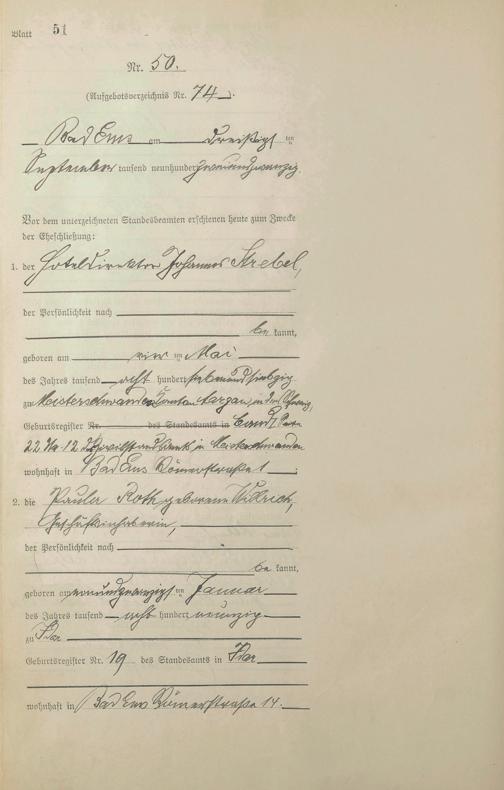 Blatt 51
Nr. 50.
(Aufgebotsverzeichnis Nr. 74).
Bad Ems am dreißigsten
September tausend neunhundert zweiundzwanzig.
Vor dem unterzeichneten Standesbeamten erschienen heute zum Zwecke
der Eheschließung:
1. der Hoteldirektor Johannes Strebel,
der Persönlichkeit nach
be kannt,
geboren am vier ten Mai
des Jahres tausend acht hundert siebenundsiebzig
zu Meisterschwanden Kanton Aargau, in der Schweiz,
Geburtsregister Nr. des Standesamts in Band
22 No 12 Meisterschwanden
wohnhaft in Bad Ems Römerstraße 1
2. die Paula Roth geborene
Geschäftsinhaberin,
der Persönlichkeit nach
be kannt,
geboren am ten Januar
des Jahres tausend acht hundert neunzig
zu
Geburtsregister Nr. 19 des Standesamts in
wohnhaft in Bad Ems Römerstraße 14.